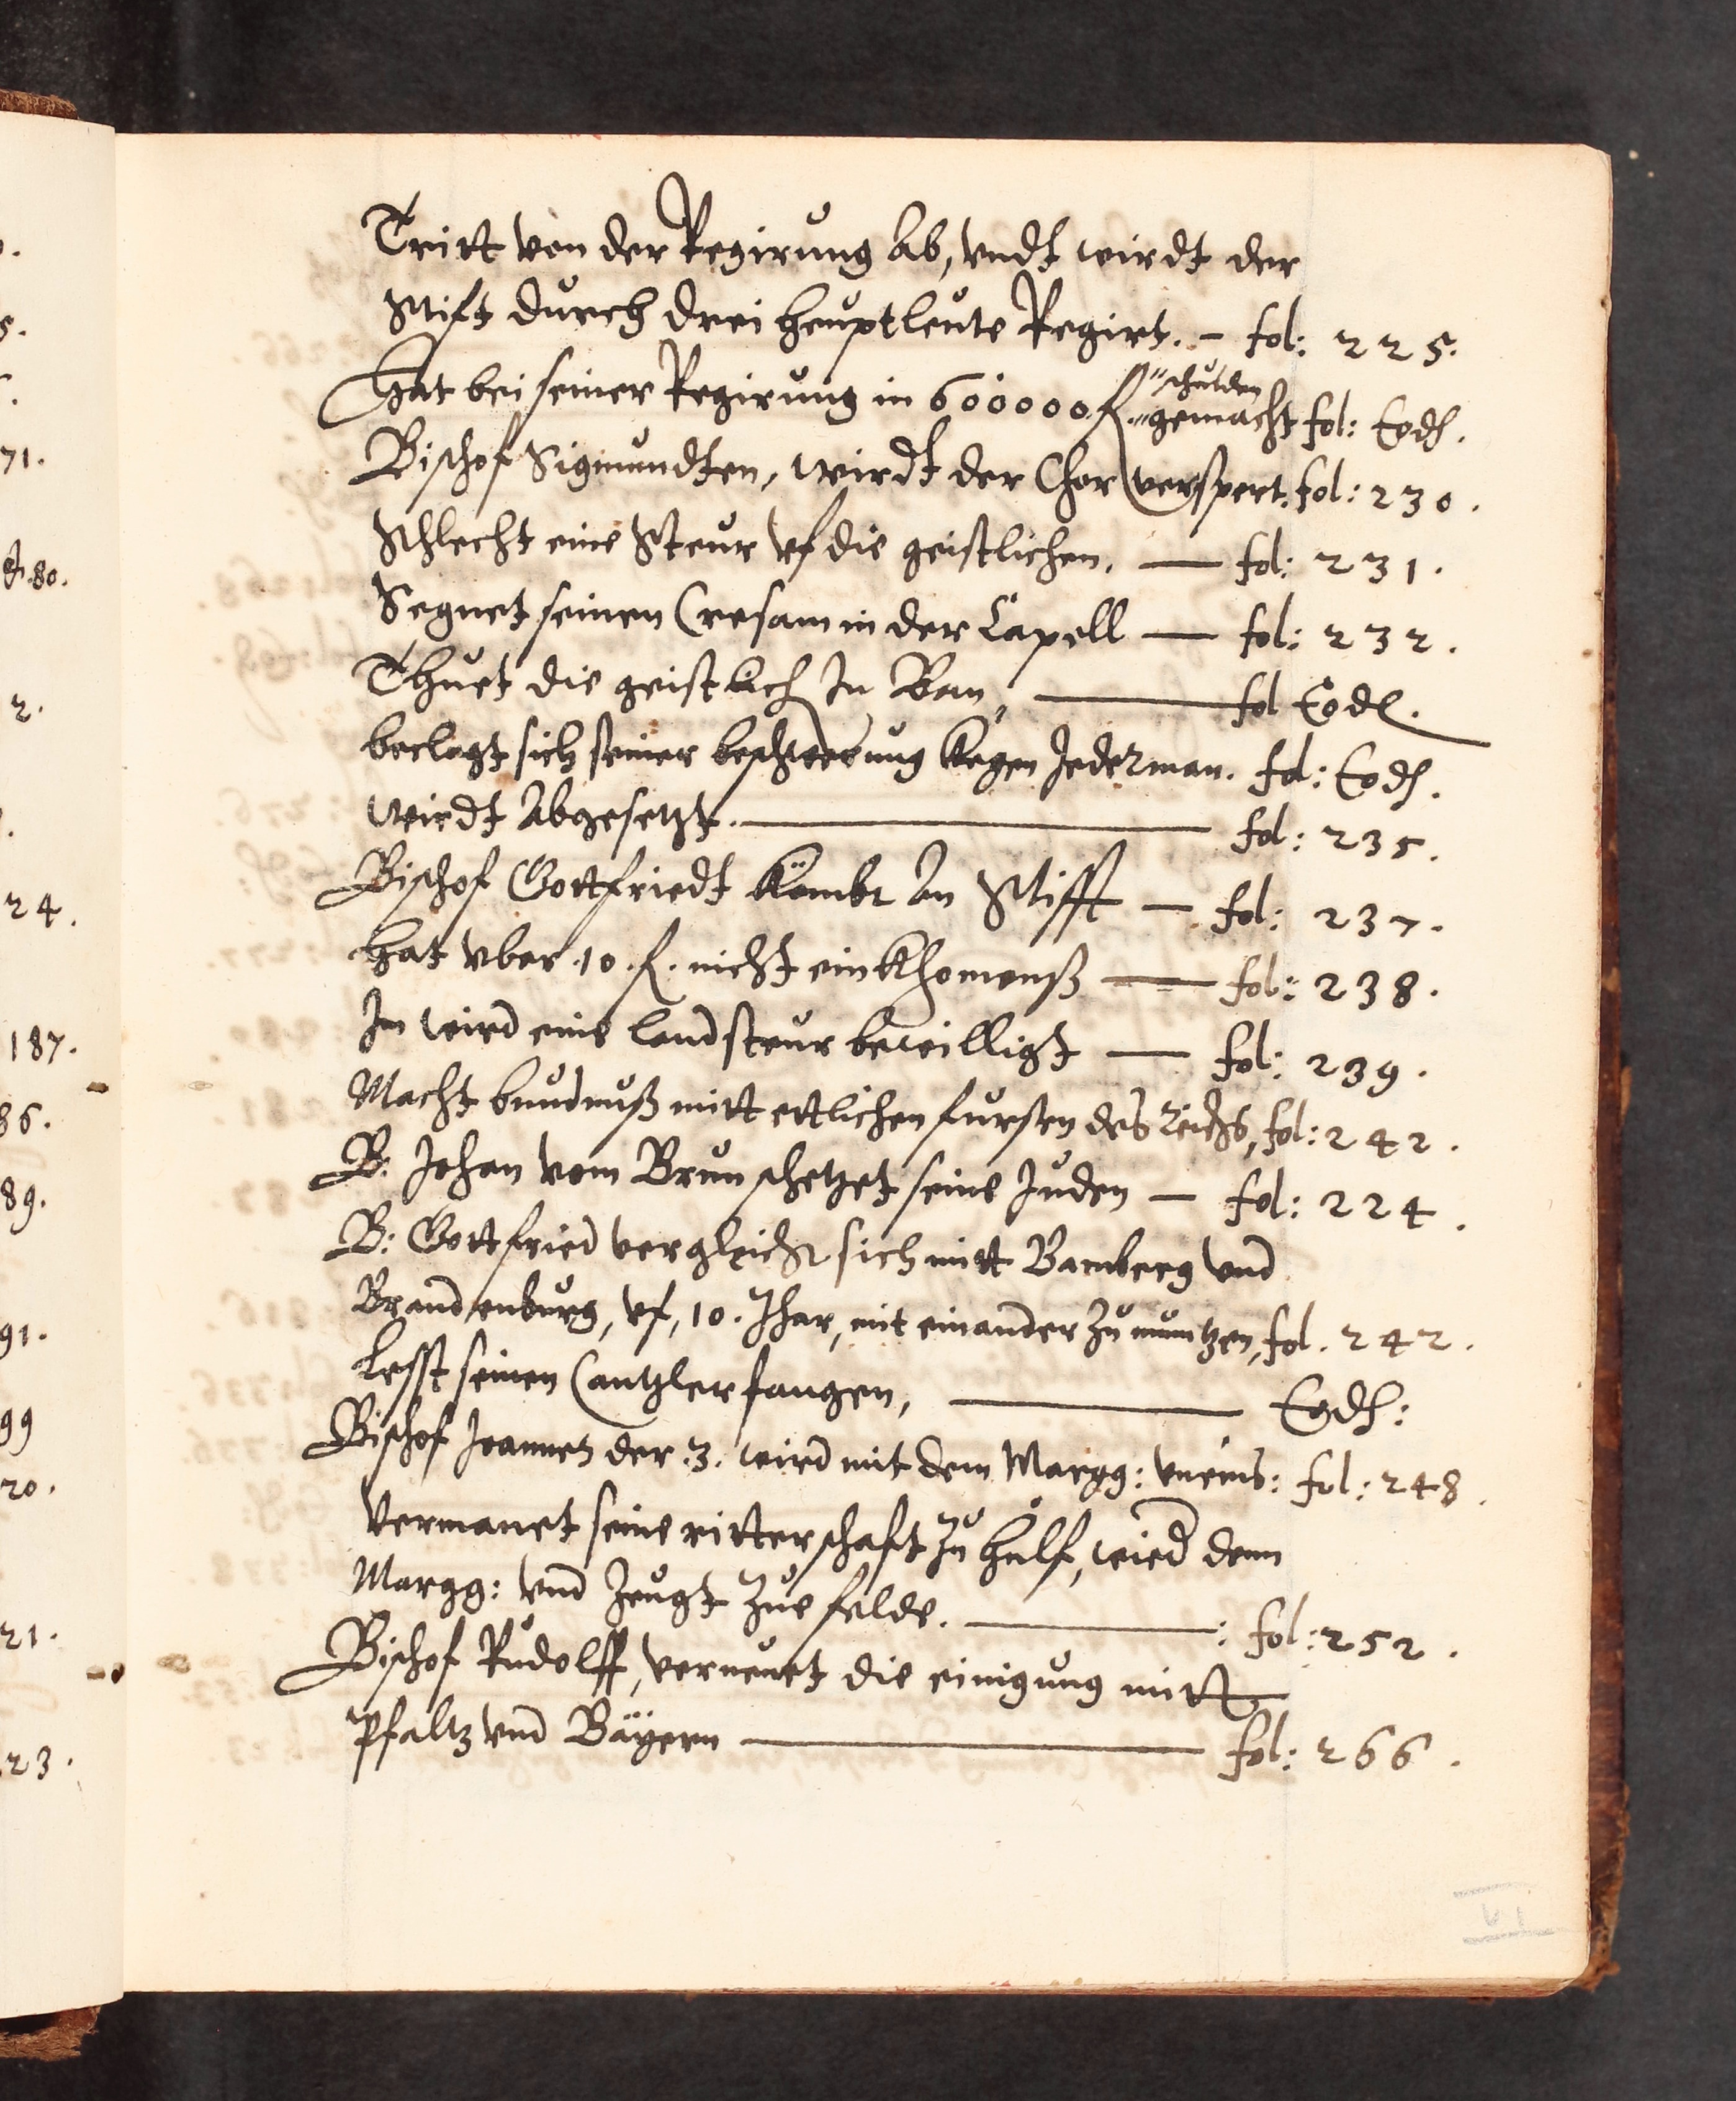 Tritt von der Regirung Ab, vndt wirdt der
Stift durch drei heuptleute Regirt. – fol: 225.
Hat bei seiner Regirung in 600000 fl. schulden gemacht fol: Eod.
Bischof Sigmundten, wirdt der Chor verspert. fol: 230.
Schlecht eine Steur vf die geistlichen. — fol: 231.
Segnet seinen Cresam in der Capell — fol: 232.
Thuet die geistlich In Ban, — fol Eod.
beclagt sich seiner beschwerung kegen Jederman. fol: Eod.
wirdt Abgesetzt. — fol: 235.
Bischof Gottfriedt kömbt An Stifft — fol: 237.
hat vber .10. fl. nicht einkhomenß — fol: 238.
Im wird eine landsteur bewilligt — fol: 239.
Macht bundnuß mitt ettlichen fursten des reichs, fol: 242.
B: Johan vom Brun schetzet seine Juden — fol: 224.
B: Gottfried vergleicht sich mitt Bamberg vnd
Brandenburg, vf, 10. Jhar, mit einander zu muntzen, fol. 242.
Lesst seinen Cantzler fangen, — Eod:
Bischof Joannes der .3. wird mit dem Margg: vneins: fol: 248.
Vermanet seine ritterschaft zu hulf, wied denn
Margg: vnd zeugt zue felde. —: fol: 252.
Bischof Rudolff, verneuet die einigung mitt
Pfaltz vnd Bäyern — fol: 266.
71.
80.
2.
24.
187.
86.
89.
91.
99
20.
21.
23.
VI